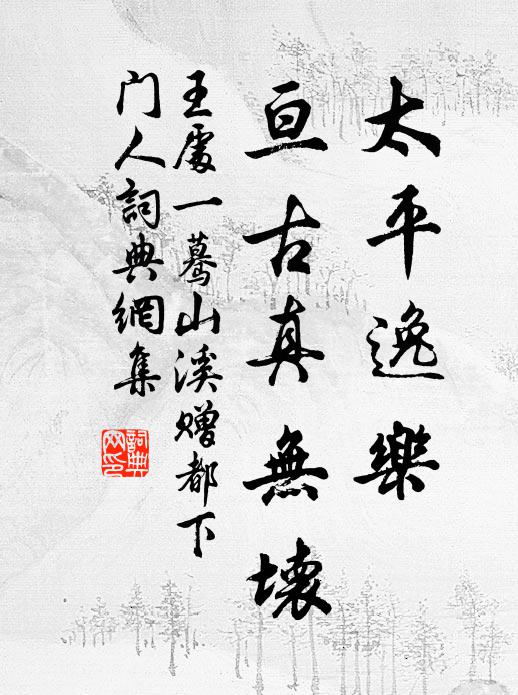 太平逸樂
亘古真無壞
王處一蓦山溪赠都下
门人詞典網集
詞典網印